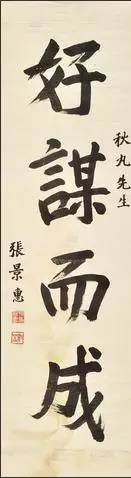 秋丸先生
好謀而成
張景惠